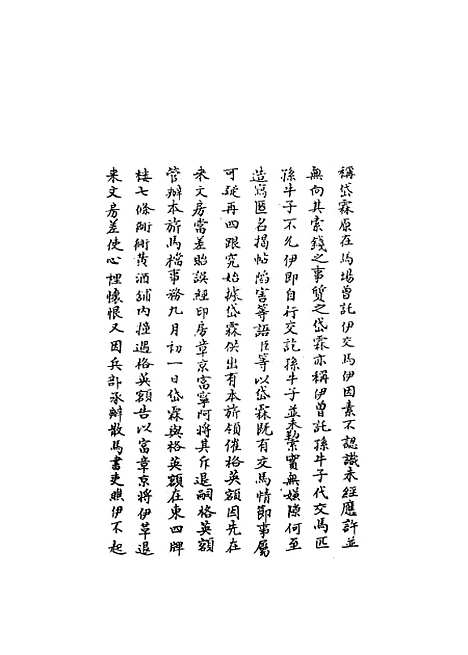 稱岱霖原在馬塲曽託伊交馬伊因素不認識未經應許並
無向其索錢之事質之岱霖亦稱伊曽託孫牛子代交馬匹
孫牛子不允伊即自行交訖孫牛子並未勒索實無嫌隙何至
造寫匿名揭帖陷害等語臣等以岱霖既有交馬情節事屬
可疑再四跟究始據岱霖供出有本旂領催格英額因先在
未文房當差貽誤經印房章京富寧阿將其斥退嗣格英額
管辦本旂馬檔事務九月初一日岱霖與格英額在東四牌
樓七條衚衕黄酒舖内撞遇格英額告以富章京將伊革退
未文房差使心裡懷恨又因兵部承辦散馬書吏瞧伊不起